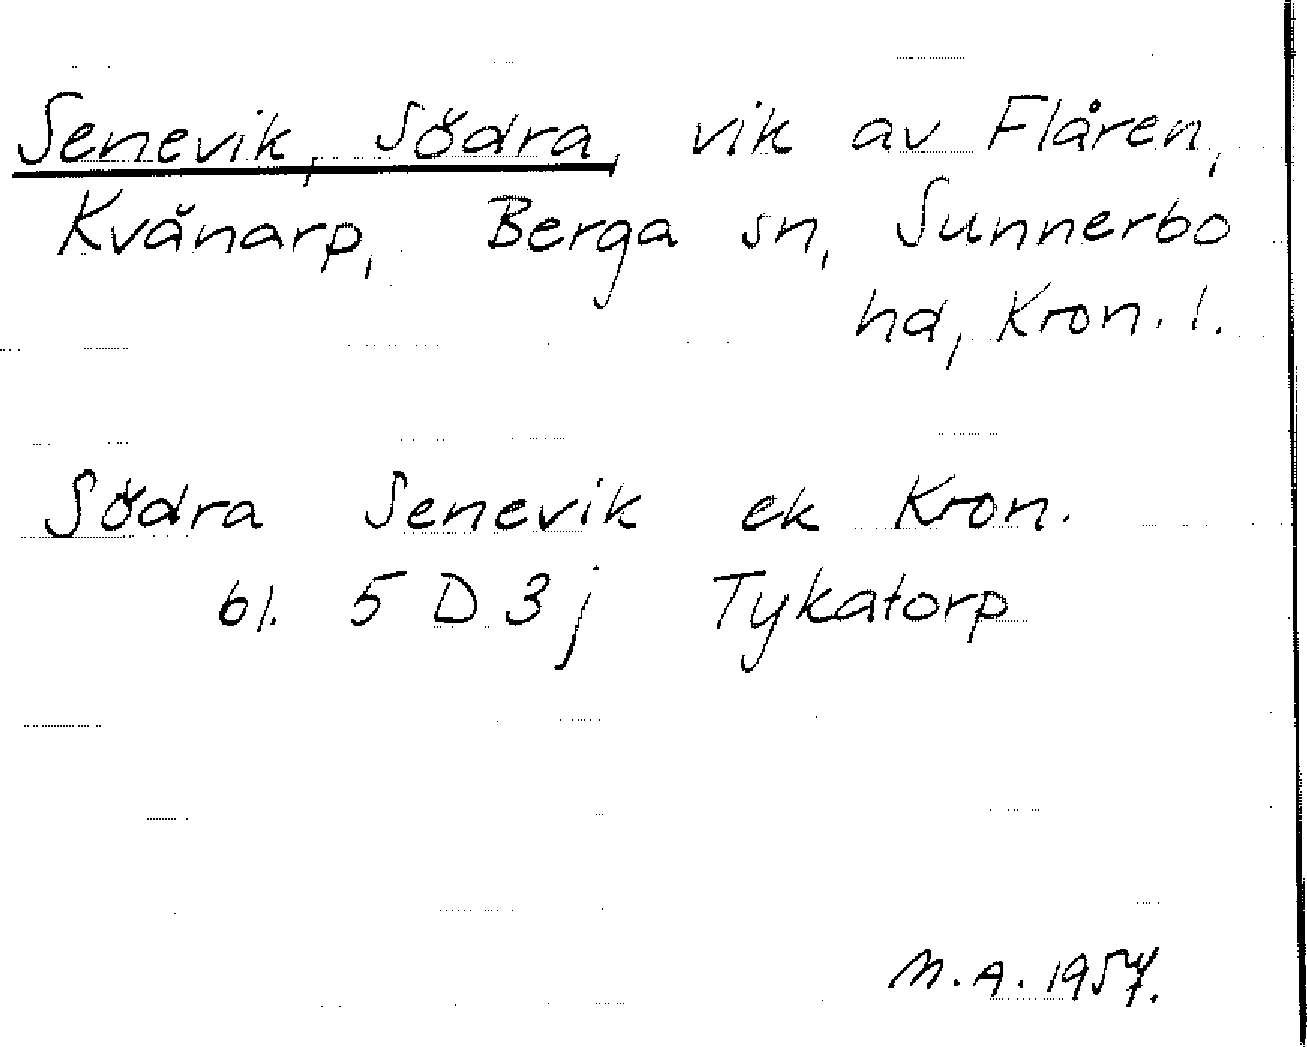 Senevik, Södra, vik av Flåren,
Kvänarp, Berga sn, Sunnerbo
hd, Kron. l.
Södra Senevik ek Kron.
bl. 5 D 3 j Tykatorp
M.A. 1957.